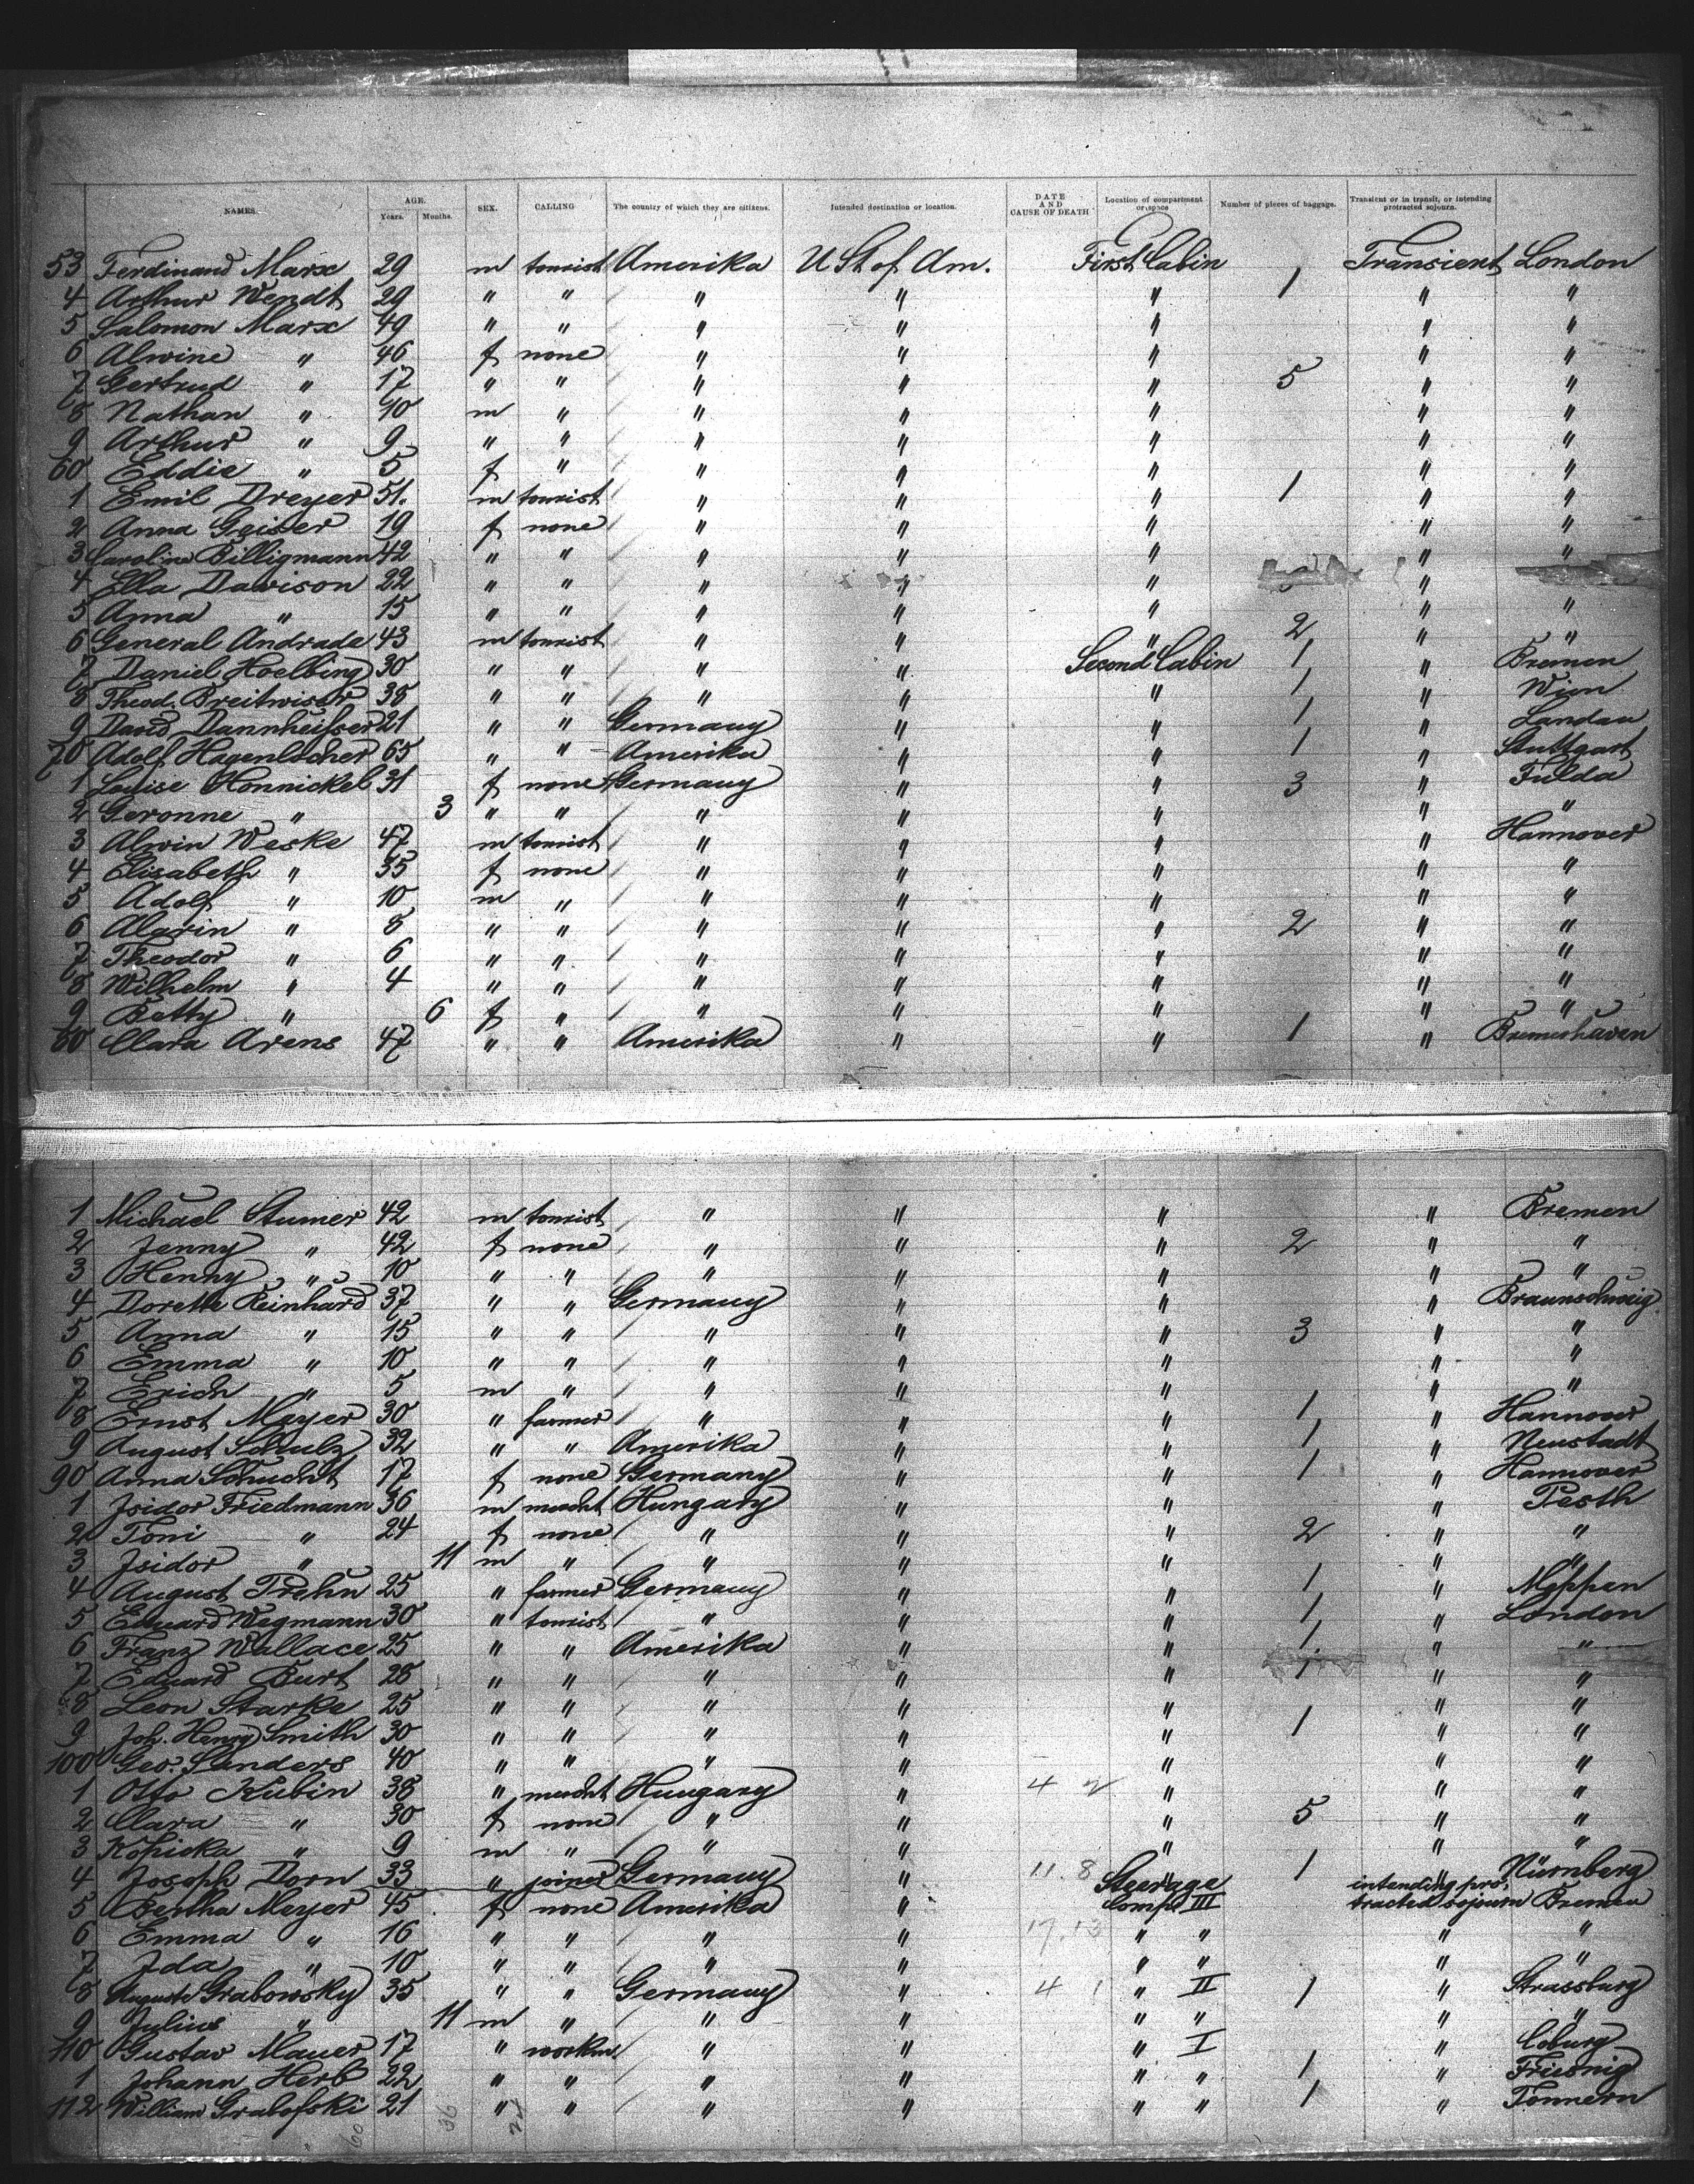 NAMES. AGE. Years. Months. SEX. CALLING The country of which they are citizens. Intended destination or location. DATE AND CAUSE OF DEATH Location of compartment or space Number of pieces of baggage. Transient or in transit, or intending protracted sojourn.
53 Ferdinand Marx 29 m tourist Amerika U St of Am. First Cabin 1 Transient London
4 Arthur Wendt 29 " " " " " " "
5 Salomon Marx 49 " " " " " " "
6 Alwine " 46 f none " " " " "
7 Gertrud " 17 " " " " " 5 " "
8 Nathan " 10 m " " " " " "
9 Arthur " 9 " " " " " " "
60 Eddie " 5 f " " " " " "
1 Emil Dreyer 51. m tourist " " " 1 " "
2 Anna Geiser 19 f none " " " " "
3 Caroline Billigmann 42 " " " " " " "
4 Ella Davison 22 " " " " " "
5 Anna " 15 " " " " " " "
6 General Andrade 43 m tourist " " " 2 " "
7 Daniel Hoelbing 30 " " " " Second Cabin 1 " Bremen
8 Theod. Breitwiser 38 " " " " " 1 " Wien
9 David Dannheisser 21 " " Germany " " 1 " Landau
70 Adolf Hagenlocher 65 " " Amerika " " 1 " Stuttgart
1 Louise Honnickel 31 f none Germany " " 3 " Fulda
2 Geronne " 3 " " " " " " "
3 Alwin Weske 47 m tourist " " " " Hannover
4 Elisabeth " 35 f none " " " " "
5 Adolf " 10 m " " " " " "
6 Alwin " 8 " " " " " 2 " "
7 Theodor " 6 " " " " " " "
8 Wilhelm " 4 " " " " " " "
9 Betty " 6 f " " " " " "
80 Clara Arens 47 " " Amerika " " 1 " Bremerhaven
1 Michael Stumer 42 m tourist " " " " Bremen
2 Jenny " 42 f none " " " 2 " "
3 Henny " 10 " " " " " " "
4 Dorette Reinhard 37 " " Germany " " " Braunschweig
5 Anna " 15 " " " " " 3 " "
6 Emma " 10 " " " " " " "
7 Erich " 5 m " " " " " "
8 Ernst Meyer 30 " farmer " " " 1 " Hannover
9 August Schulz 32 " " Amerika " " 1 " Neustadt
90 Anna Schucht 17 f none Germany " " 1 " Hannover
1 Isidor Friedmann 36 m mercht Hungary " " " Pesth
2 Toni " 24 f none " " " 2 " "
3 Isidor " 11 m " " " " " "
4 August Prehn 25 " farmer Germany " " 1 " Meppen
5 Eduard Wegmann 30 " tourist " " " 1 " London
6 Franz Wallace 25 " " Amerika " " 1 " "
7 Eduard Burt 28 " " " " " 1 " "
8 Leon Starke 25 " " " " " " "
9 Joh. Henry Smith 30 " " " " " 1 " "
100 Geo. Sanders 40 " " " " " " "
1 Otto Kubin 38 " mercht Hungary " 4 2 " " "
2 Clara " 30 f none " " " 5 " "
3 " 9 m " " " " " "
4 Joseph Dorn 33 " joiner Germany " 11. 8 Steerage 1 " Nürnberg
5 Bertha Meyer 45 f none Amerika " Comp. III intending protracted sojourn Bremen
6 Emma " 16 " " " " 17. 13 " " " "
7 Ida " 10 " " " " " " " "
8 Auguste Grabowsky 35 " " Germany " 4 1 " II 1 " Strassburg
9 Julius " 11 m " " " " " " "
110 Gustav Mauer 17 " workm. " " " I " Coburg
1 Johann Herb 22 " " " " " " 1 "
112 William Grabofski 21 " " " " " " 1 "
60 36